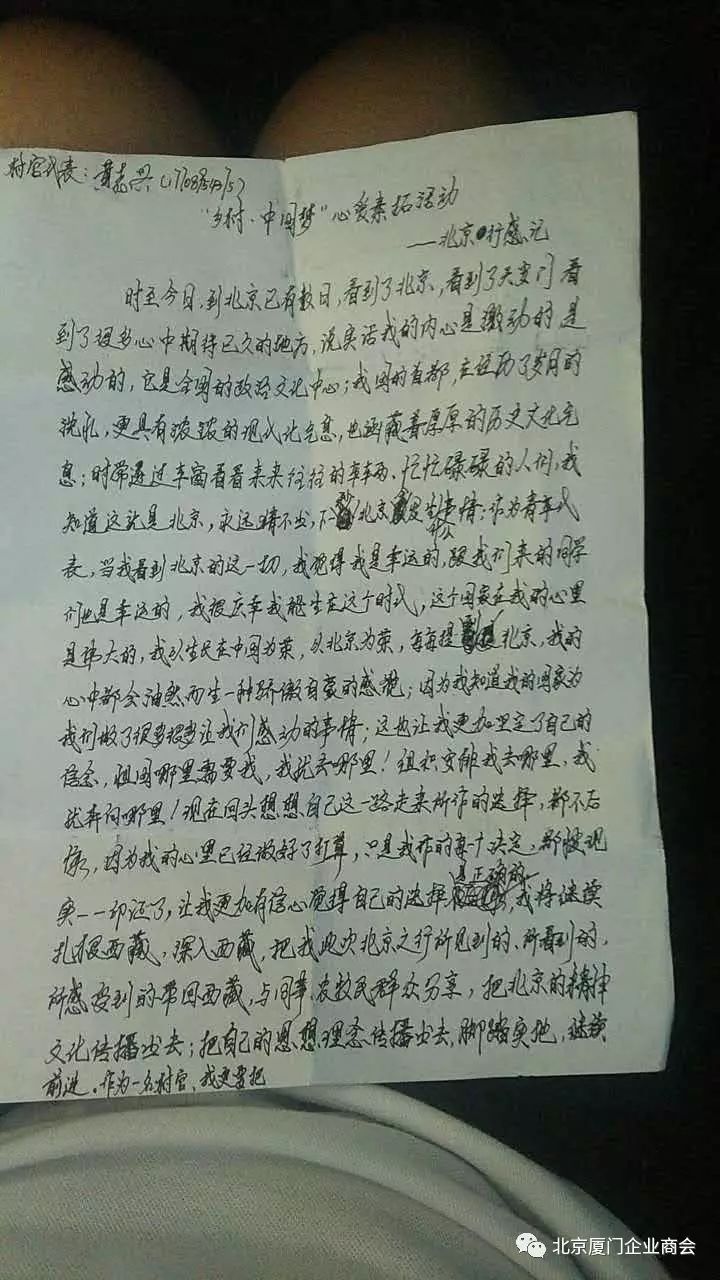 村官代表：黄志兴
“乡村·中国梦”心爱素拓活动
——北京行感记
时至今日，到北京已有数日，看到了北京，看到了天安门看
到了很多心中期待已久的地方，说实话我的内心是激动的是
感动的，它是全国的政治文化中心；我国的首都，在经历了岁月的
洗礼，更具有浓浓的现代化气息，也涵藏着厚厚的历史文化气
息；时常透过车窗看着来来往往的车辆、忙忙碌碌的人们，我
知道这就是北京，永远猜不出，下一秒北京发生什么事情；作为青年代
表，当我看到北京的这一切，我觉得我是幸运的，跟我们来的同学
们也是幸运的，我很庆幸我能生在这个时代，这个国家在我的心里
是伟大的，我以生长在中国为荣，以北京为荣，每每提到北京，我的
心中都会油然而生一种骄傲自豪的感觉；因为我知道我的国家为
我们做了很多很多让我们感动的事情；这也让我更加坚定了自己的
信念，祖国哪里需要我，我就去哪里！组织安排我去哪里，我
就奔向哪里！现在回头想想自己这一路走来所作的选择，都不后
悔，因为我的心里已经做好了打算，只是我作的每个决定，都被现
实一一印证了，让我更加有信心觉得自己的选择是正确的，我将继续
扎根西藏，深入西藏，把我此次北京之行所见到的、所看到的，
所感受到的带回西藏，与同事、农牧民群众分享，把北京的精神
文化传播出去；把自己的思想理念传播出去，脚踏实地，继续
前进。作为一名村官、我更要把
北京厦门企业商会